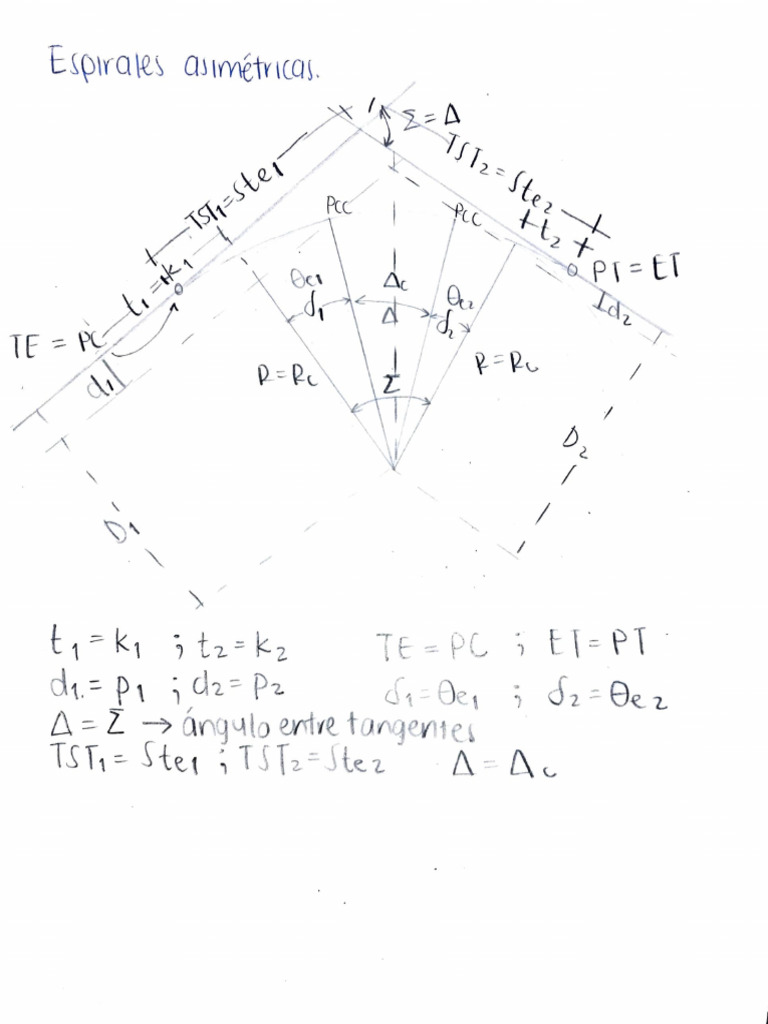 Espirales asimétricas.
Σ = Δ
TST₁ = Ste₁
TST₂ = Ste₂
PCC
PCC
t₂
t₁ = k₁
PT = ET
θe₁
δ₁
Δc
Δ
θe₂
δ₂
d₂
TE = PC
d₁
R = Rc
R = Rc
Σ
D₂
D₁
t₁ = k₁ ; t₂ = k₂ TE = PC ; ET = PT
d₁ = p₁ ; d₂ = p₂ δ₁ = θe₁ ; δ₂ = θe₂
Δ = Σ → ángulo entre tangentes
TST₁ = Ste₁ ; TST₂ = Ste₂ Δ = Δc